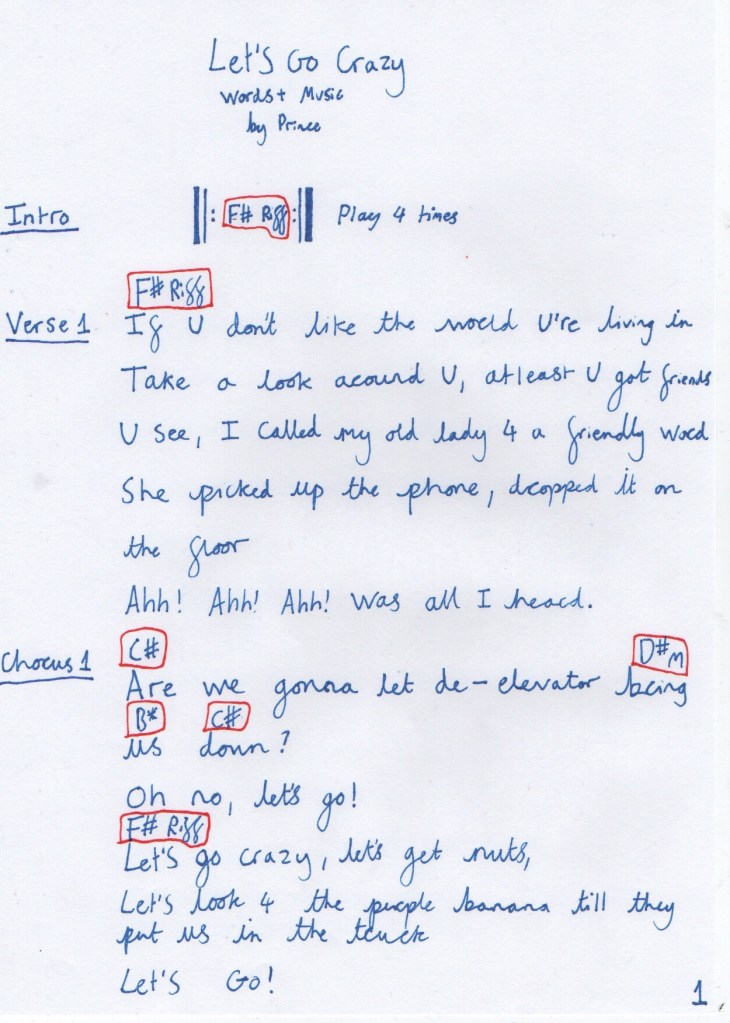 Let's Go Crazy
Words + Music
by Prince
Intro ||: F# Riff :|| Play 4 times
F# Riff
Verse 1 If U don't like the world U're living in
Take a look around U, atleast U got friends
U see, I called my old lady 4 a friendly word
She picked up the phone, dropped it on
the floor
Ahh! Ahh! Ahh! Was all I heard.
C# D#m
Chorus 1 Are we gonna let de-elevator bring
B* C#
us down?
Oh no, let's go!
F# Riff
Let's go crazy, let's get nuts,
Let's look 4 the purple banana till they
put us in the truck
Let's Go!
1